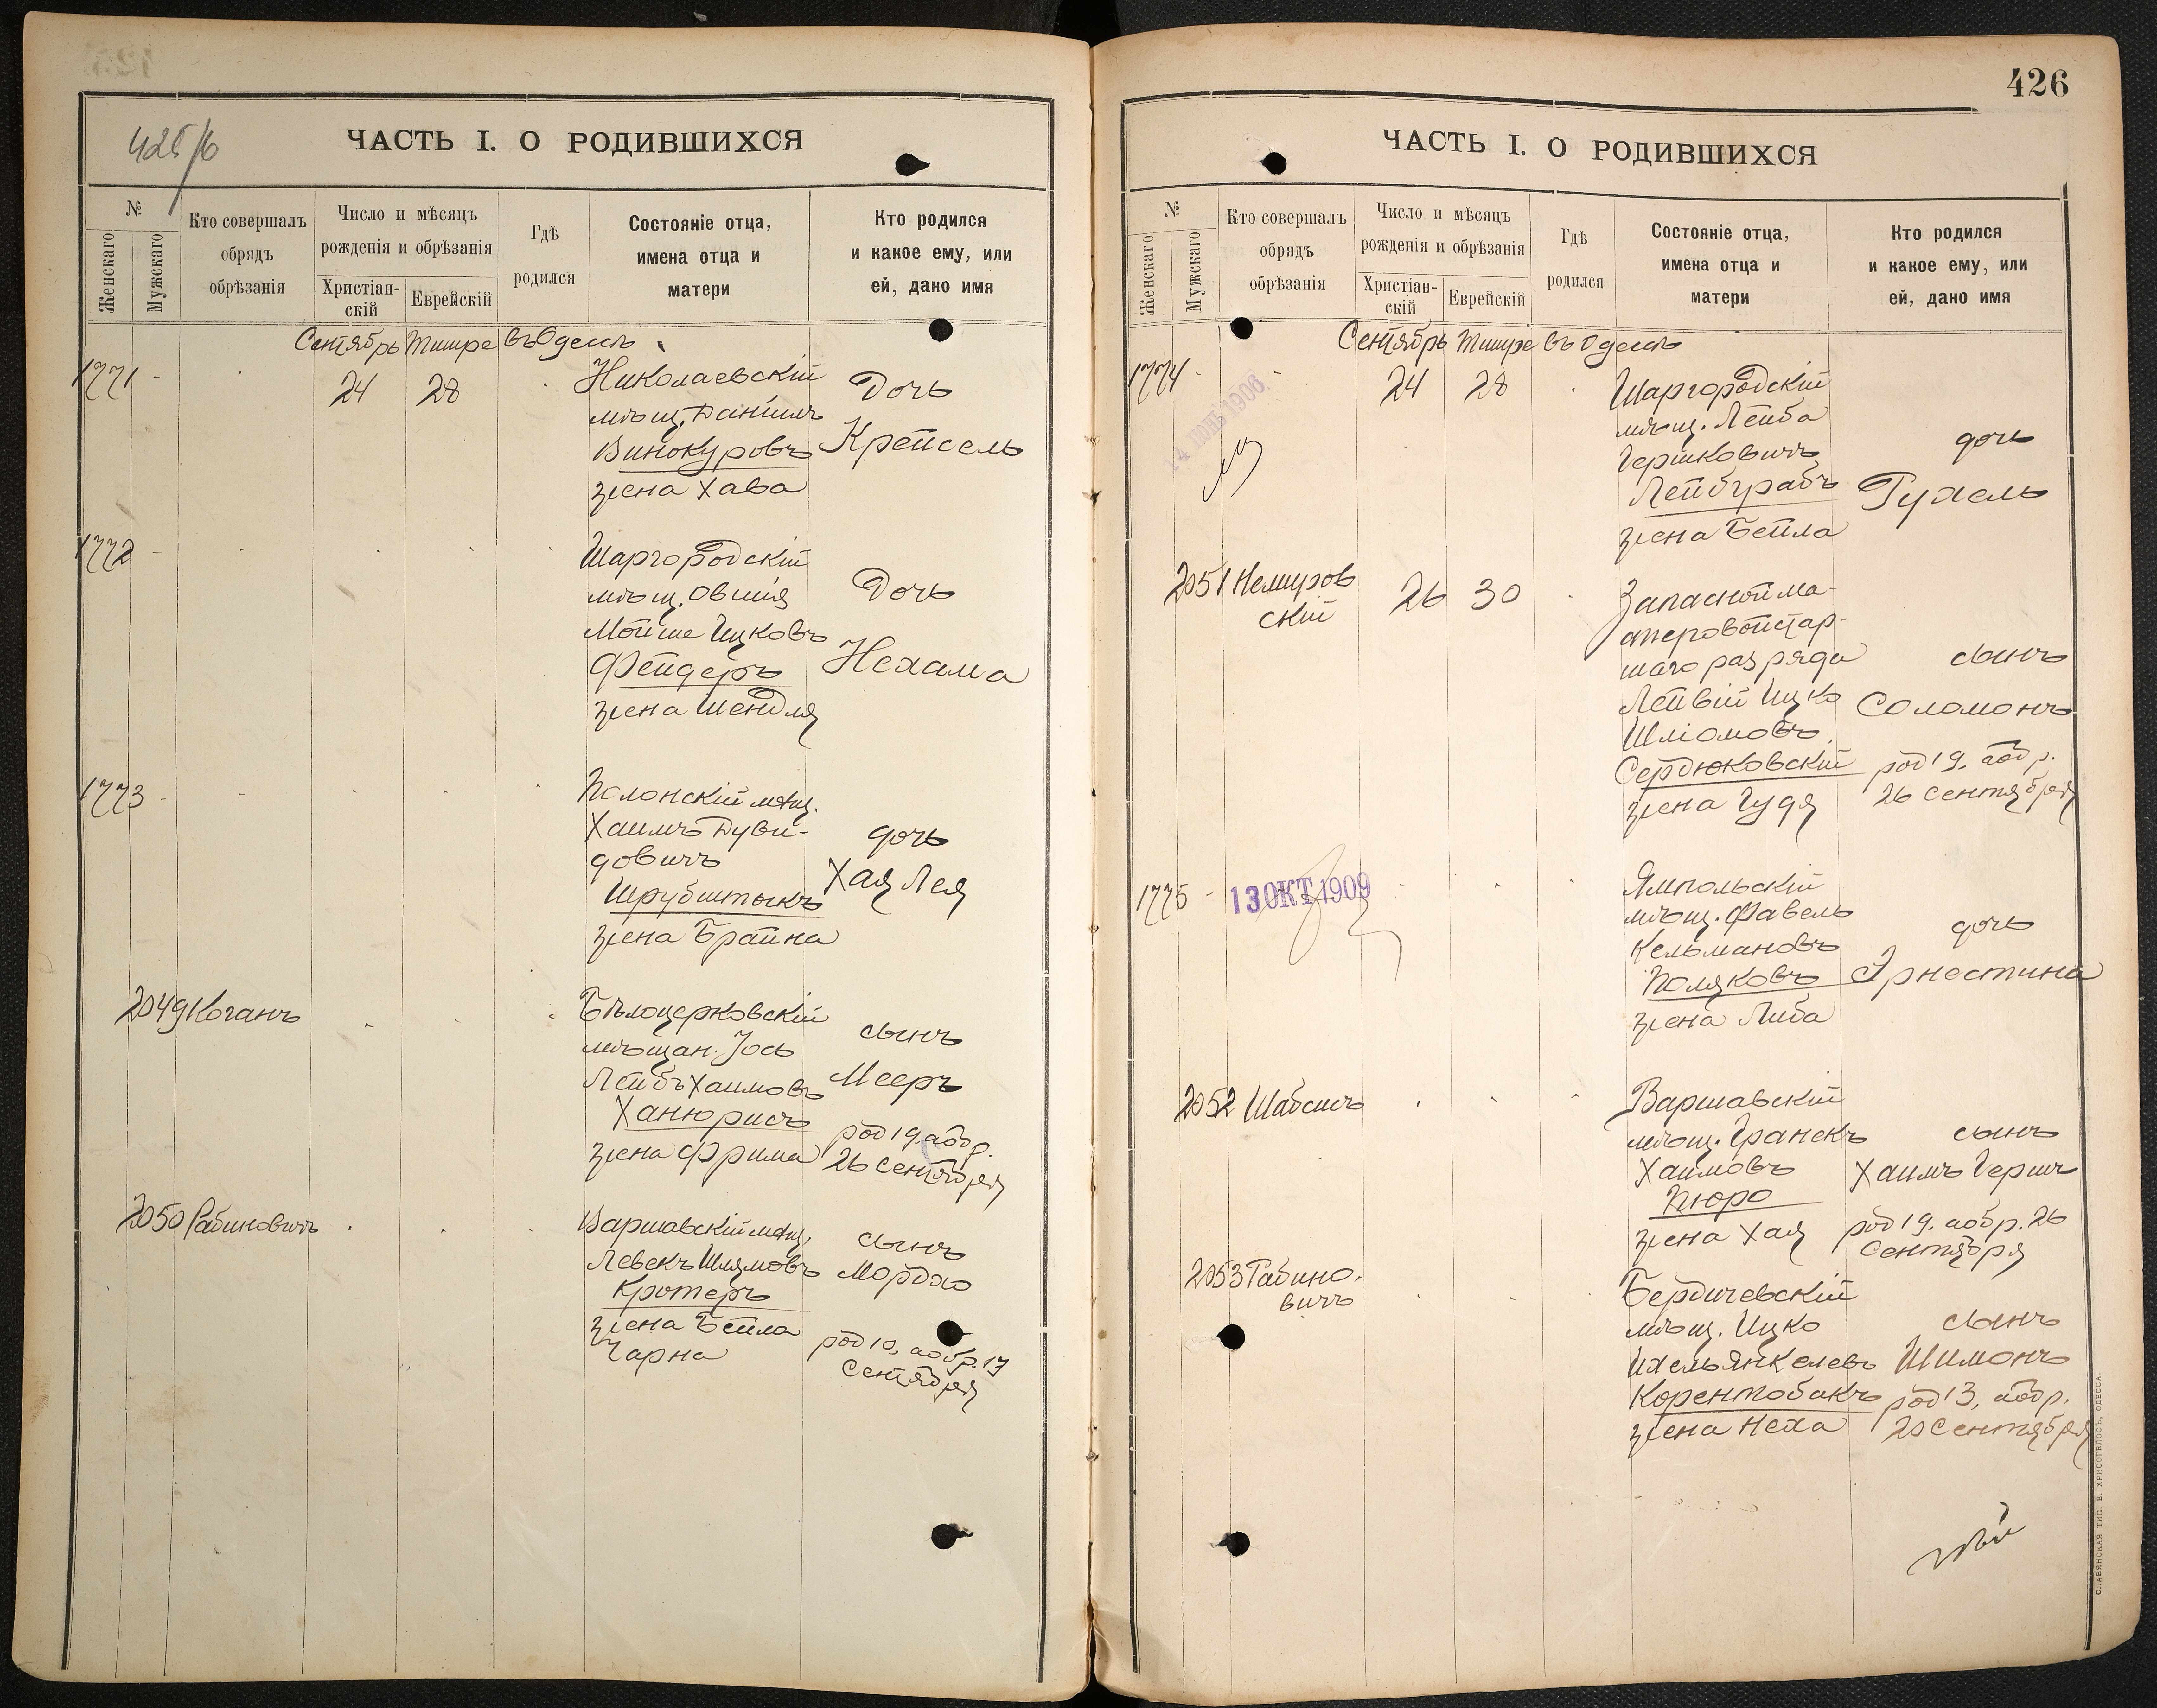 425/б
ЧАСТЬ I. О РОДИВШИХСЯ
№
Женскаго
Мужскаго
Кто совершалъ
обрядъ
обрѣзанія
Число и мѣсяцъ
рожденія и обрѣзанія
Христіан-
скій
Еврейскій
Гдѣ
родился
Состояніе отца,
имена отца и
матери
Кто родился
и какое ему, или
ей, дано имя
Сентябрь Тишре въ Одессѣ
1771 - 24 28
Николаевскій
мѣщ. Данiилъ
Винокуровъ
жена Хава
Дочь
Крейсель
1772 -
Шаргородскій
мѣщ. Овшія
Мойше Ицковъ
Фейдеръ
жена Шейндля
Дочь
Нехама
1773 -
Полонскій мѣщ.
Хаимъ Дуви-
довичъ
Шрубштокъ
жена Брайна
дочь
Хая Лея
2049 Коганъ
Бѣлоцерковскій
мѣщан. Іось
Лейбъ Хаимовъ
Ханюрисъ
жена Фрима
сынъ
Мееръ
род 19. а обр.
26 Сентября
2050 Рабиновичъ
Варшавскій мѣщ.
Левекъ Шлямовъ
Кротеръ
жена Бейла
Чарна
сынъ
Мордко
род 10, а обр. 17
Сентября
426
ЧАСТЬ I. О РОДИВШИХСЯ
№
Женскаго
Мужскаго
Кто совершалъ
обрядъ
обрѣзанія
Число и мѣсяцъ
рожденія и обрѣзанія
Христіан-
скій
Еврейскій
Гдѣ
родился
Состояніе отца,
имена отца и
матери
Кто родился
и какое ему, или
ей, дано имя
Сентябрь Тишре въ Одессѣ
1774 - 24 28
1906
Шаргородскій
мѣщ. Лейба
Гершковичъ
Лейбграбъ
жена Бейла
дочь
Рухель
2051 Немиров
скій
26 30
Запасной ма-
стеровой стар-
шаго разряда
Лейвій Ицко
Шліомовъ
Сердюковскій
жена Гудя
сынъ
Соломонъ
род 19. а обр.
26 Сентября
1775 -
13 ОКТ. 1909
Ямпольскій
мѣщ. Фавель
Кельмановъ
Поляковъ
жена Либа
дочь
Эрнестина
2052 Шабсисъ
Варшавскій
мѣщ. Гранекъ
Хаимовъ
Пюро
жена Хая
сынъ
Хаимъ Гершъ
род 19. а обр. 26
Сентября
2053 Рабино-
вичъ
Бердичевскій
мѣщ. Ицко
Ихель Янкелевъ
Корентобакъ
жена Неха
сынъ
Шимонъ
род 13, а обр.
20 Сентября
СЛАВЯНСКАЯ ТИП. Е. ХРИСОГЕЛОСЪ, ОДЕССА.